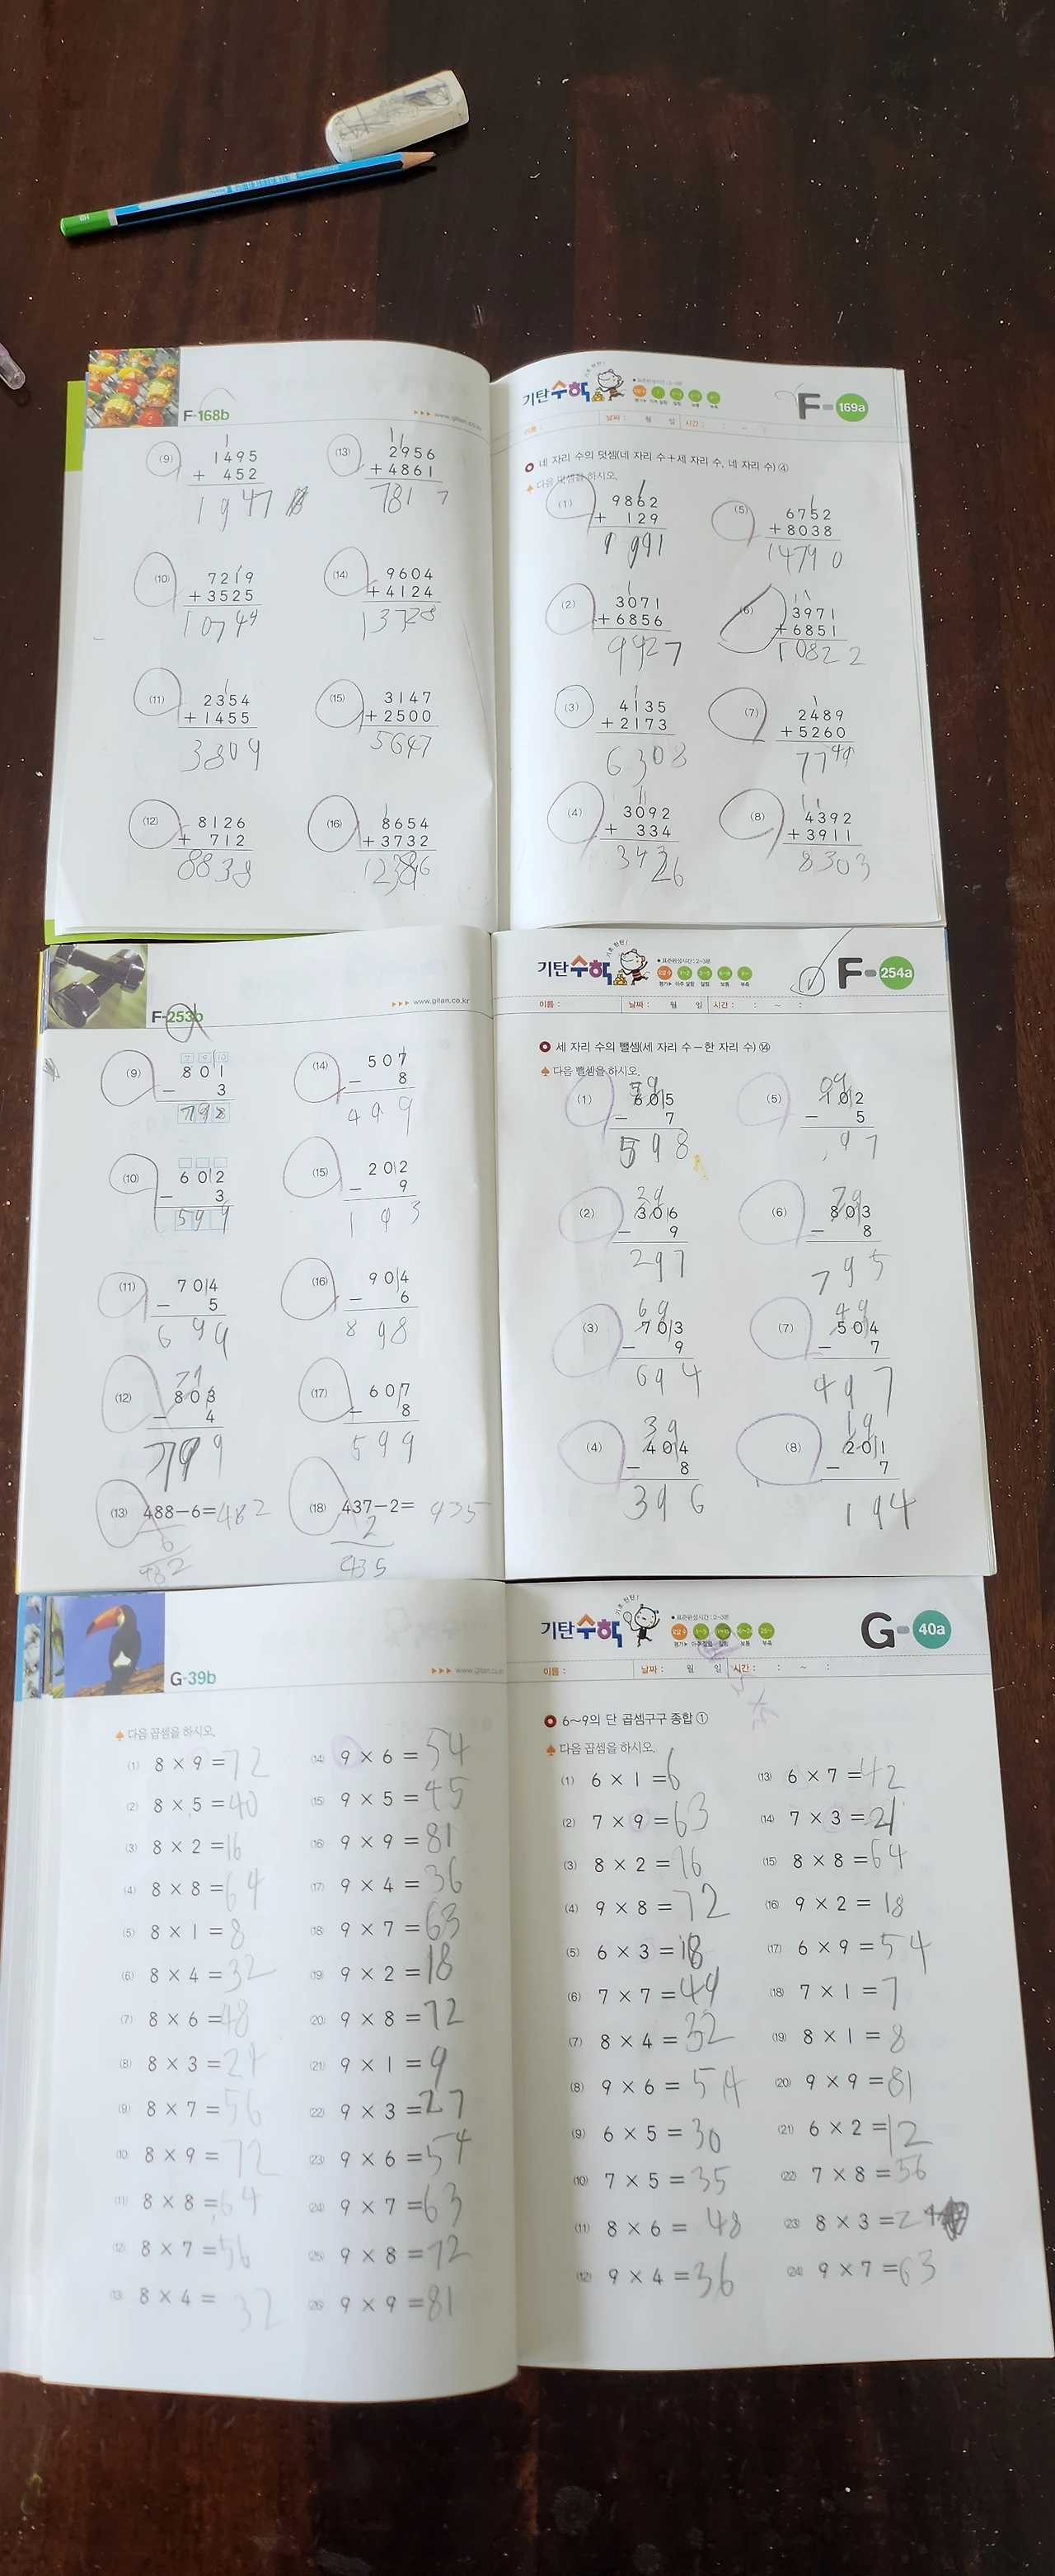 F-168b
▶▶▶ www.gitan.co.kr
(9)
1
1495
+ 452
1947
(13)
11
2956
+4861
7817
(10)
1
7219
+3525
10744
(14)
9604
+4124
13728
(11)
1
2354
+1455
3809
(15)
3147
+2500
5647
(12)
8126
+ 712
8838
(16)
1
8654
+3732
12386
기탄수학
기초 탄탄!
F-169a
이름 :
날짜 : 월 일
시간 : : ~ :
네 자리 수의 덧셈(네 자리 수+세 자리 수, 네 자리 수) ④
다음 덧셈을 하시오.
(1)
1
9862
+ 129
9991
(5)
1
6752
+8038
14790
(2)
1
3071
+6856
9927
(6)
11
3971
+6851
10822
(3)
1
4135
+2173
6308
(7)
1
2489
+5260
7749
(4)
11
3092
+ 334
3426
(8)
11
4392
+3911
8303
F-253b
▶▶▶ www.gitan.co.kr
(9)
7 9 10
801
- 3
798
(14)
507
- 8
499
(10)
602
- 3
599
(15)
202
- 9
193
(11)
704
- 5
699
(16)
904
- 6
898
(12)
79
803
- 4
799
(17)
607
- 8
599
(13) 488-6=482
6
482
(18) 437-2= 435
2
435
기탄수학
기초 탄탄!
• 표준완성시간 : 2~3분
F-254a
이름 :
날짜 : 월 일
시간 : : ~ :
세 자리 수의 뺄셈(세 자리 수-한 자리 수) ⑭
다음 뺄셈을 하시오.
(1)
59
605
- 7
598
(5)
09
102
- 5
97
(2)
29
306
- 9
297
(6)
79
803
- 8
795
(3)
69
703
- 9
694
(7)
49
504
- 7
497
(4)
39
404
- 8
396
(8)
19
201
- 7
194
G-39b
▶▶▶ www.gitan.co.kr
다음 곱셈을 하시오.
(1) 8 × 9 =72
(14) 9 × 6 =54
(2) 8 × 5 =40
(15) 9 × 5 =45
(3) 8 × 2 =16
(16) 9 × 9 =81
(4) 8 × 8 =64
(17) 9 × 4 =36
(5) 8 × 1 =8
(18) 9 × 7 =63
(6) 8 × 4 =32
(19) 9 × 2 =18
(7) 8 × 6 =48
(20) 9 × 8 =72
(8) 8 × 3 =24
(21) 9 × 1 =9
(9) 8 × 7 =56
(22) 9 × 3 =27
(10) 8 × 9 =72
(23) 9 × 6 =54
(11) 8 × 8 =64
(24) 9 × 7 =63
(12) 8 × 7 =56
(25) 9 × 8 =72
(13) 8 × 4 = 32
(26) 9 × 9 =81
기탄수학
기초 탄탄!
• 표준완성시간 : 2~3분
G-40a
이름 :
날짜 : 월 일
시간 : : ~ :
6~9의 단 곱셈구구 종합 ①
다음 곱셈을 하시오.
(1) 6 × 1 =6
(13) 6 × 7 =42
(2) 7 × 9 =63
(14) 7 × 3 =21
(3) 8 × 2 =16
(15) 8 × 8 =64
(4) 9 × 8 =72
(16) 9 × 2 = 18
(5) 6 × 3 =18
(17) 6 × 9 =54
(6) 7 × 7 =49
(18) 7 × 1 =7
(7) 8 × 4 =32
(19) 8 × 1 = 8
(8) 9 × 6 = 54
(20) 9 × 9 =81
(9) 6 × 5 = 30
(21) 6 × 2 =12
(10) 7 × 5 = 35
(22) 7 × 8 =56
(11) 8 × 6 = 48
(23) 8 × 3 =24
(12) 9 × 4 =36
(24) 9 × 7 =63